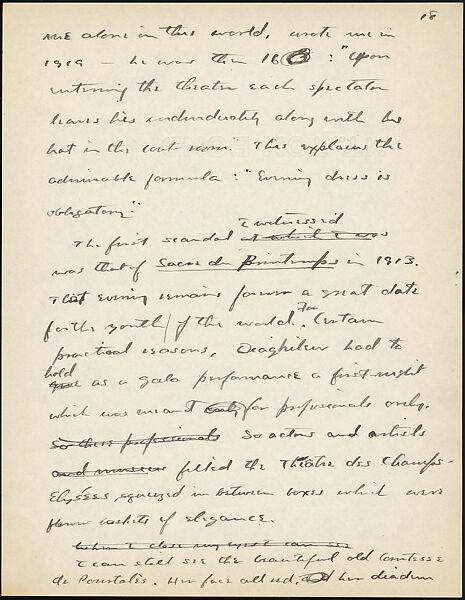 18
me alone in this world, wrote me in
1919 — he was then 16 : "Upon
entering the theater each spectator
leaves his individuality along with his
hat in the coat-room." This explains the
admirable formula : "Evening dress is
obligatory."
I witnessed
The first scandal at which I was
was that of Sacre du Printemps in 1913.
That evening remains forever a great date
for the youth of the world. For Certain
practical reasons, Diaghilew had to
hold
give as a gala performance a first-night
which was meant only for professionals only.
So these professionals So actors and artists
and musicians filled the Théâtre des Champs-
Elysées, squeezed in between boxes which were
flower baskets of elegance.
When I close my eyes I can see
I can still see the beautiful old Comtesse
de Pourtales. Her face all red, her diadem